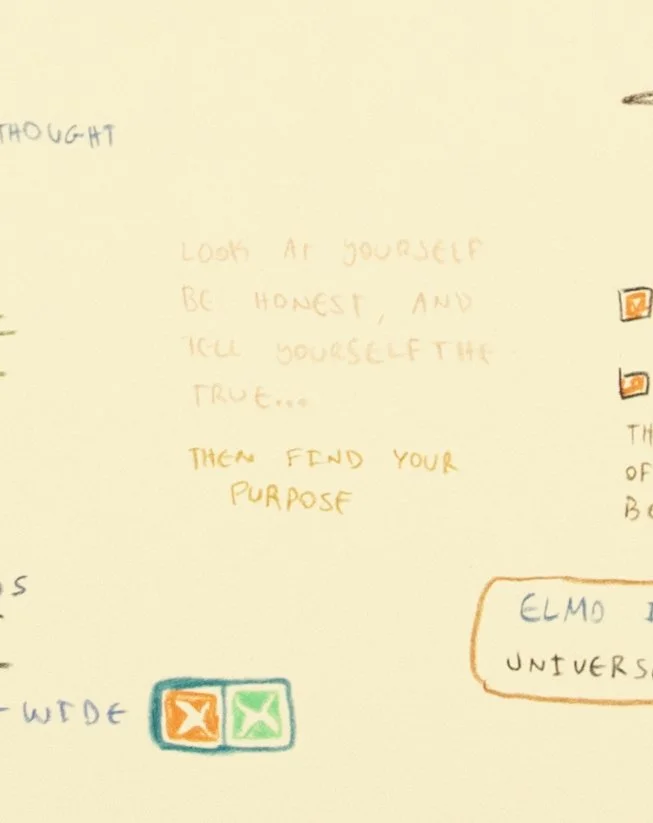 THOUGHT
LOOK AT YOURSELF
BE HONEST, AND
TELL YOURSELF THE
TRUE...
THEN FIND YOUR
PURPOSE
TH
OF
BE
S
ELMO
UNIVERS
-WIDE